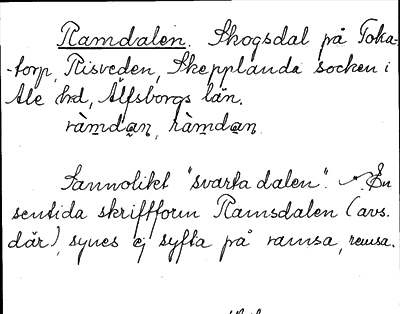 Ramdalen. Skogsdal på Toka-
-torp, Risveden, Skepplanda socken i
Ale hd, Älfsborgs län.
ràmdan, ràmdan
Sannolikt "svarta dalen". En
sentida skriftform Ramsdalen (avs.
där), synes ej syfta på ramsa, remsa.